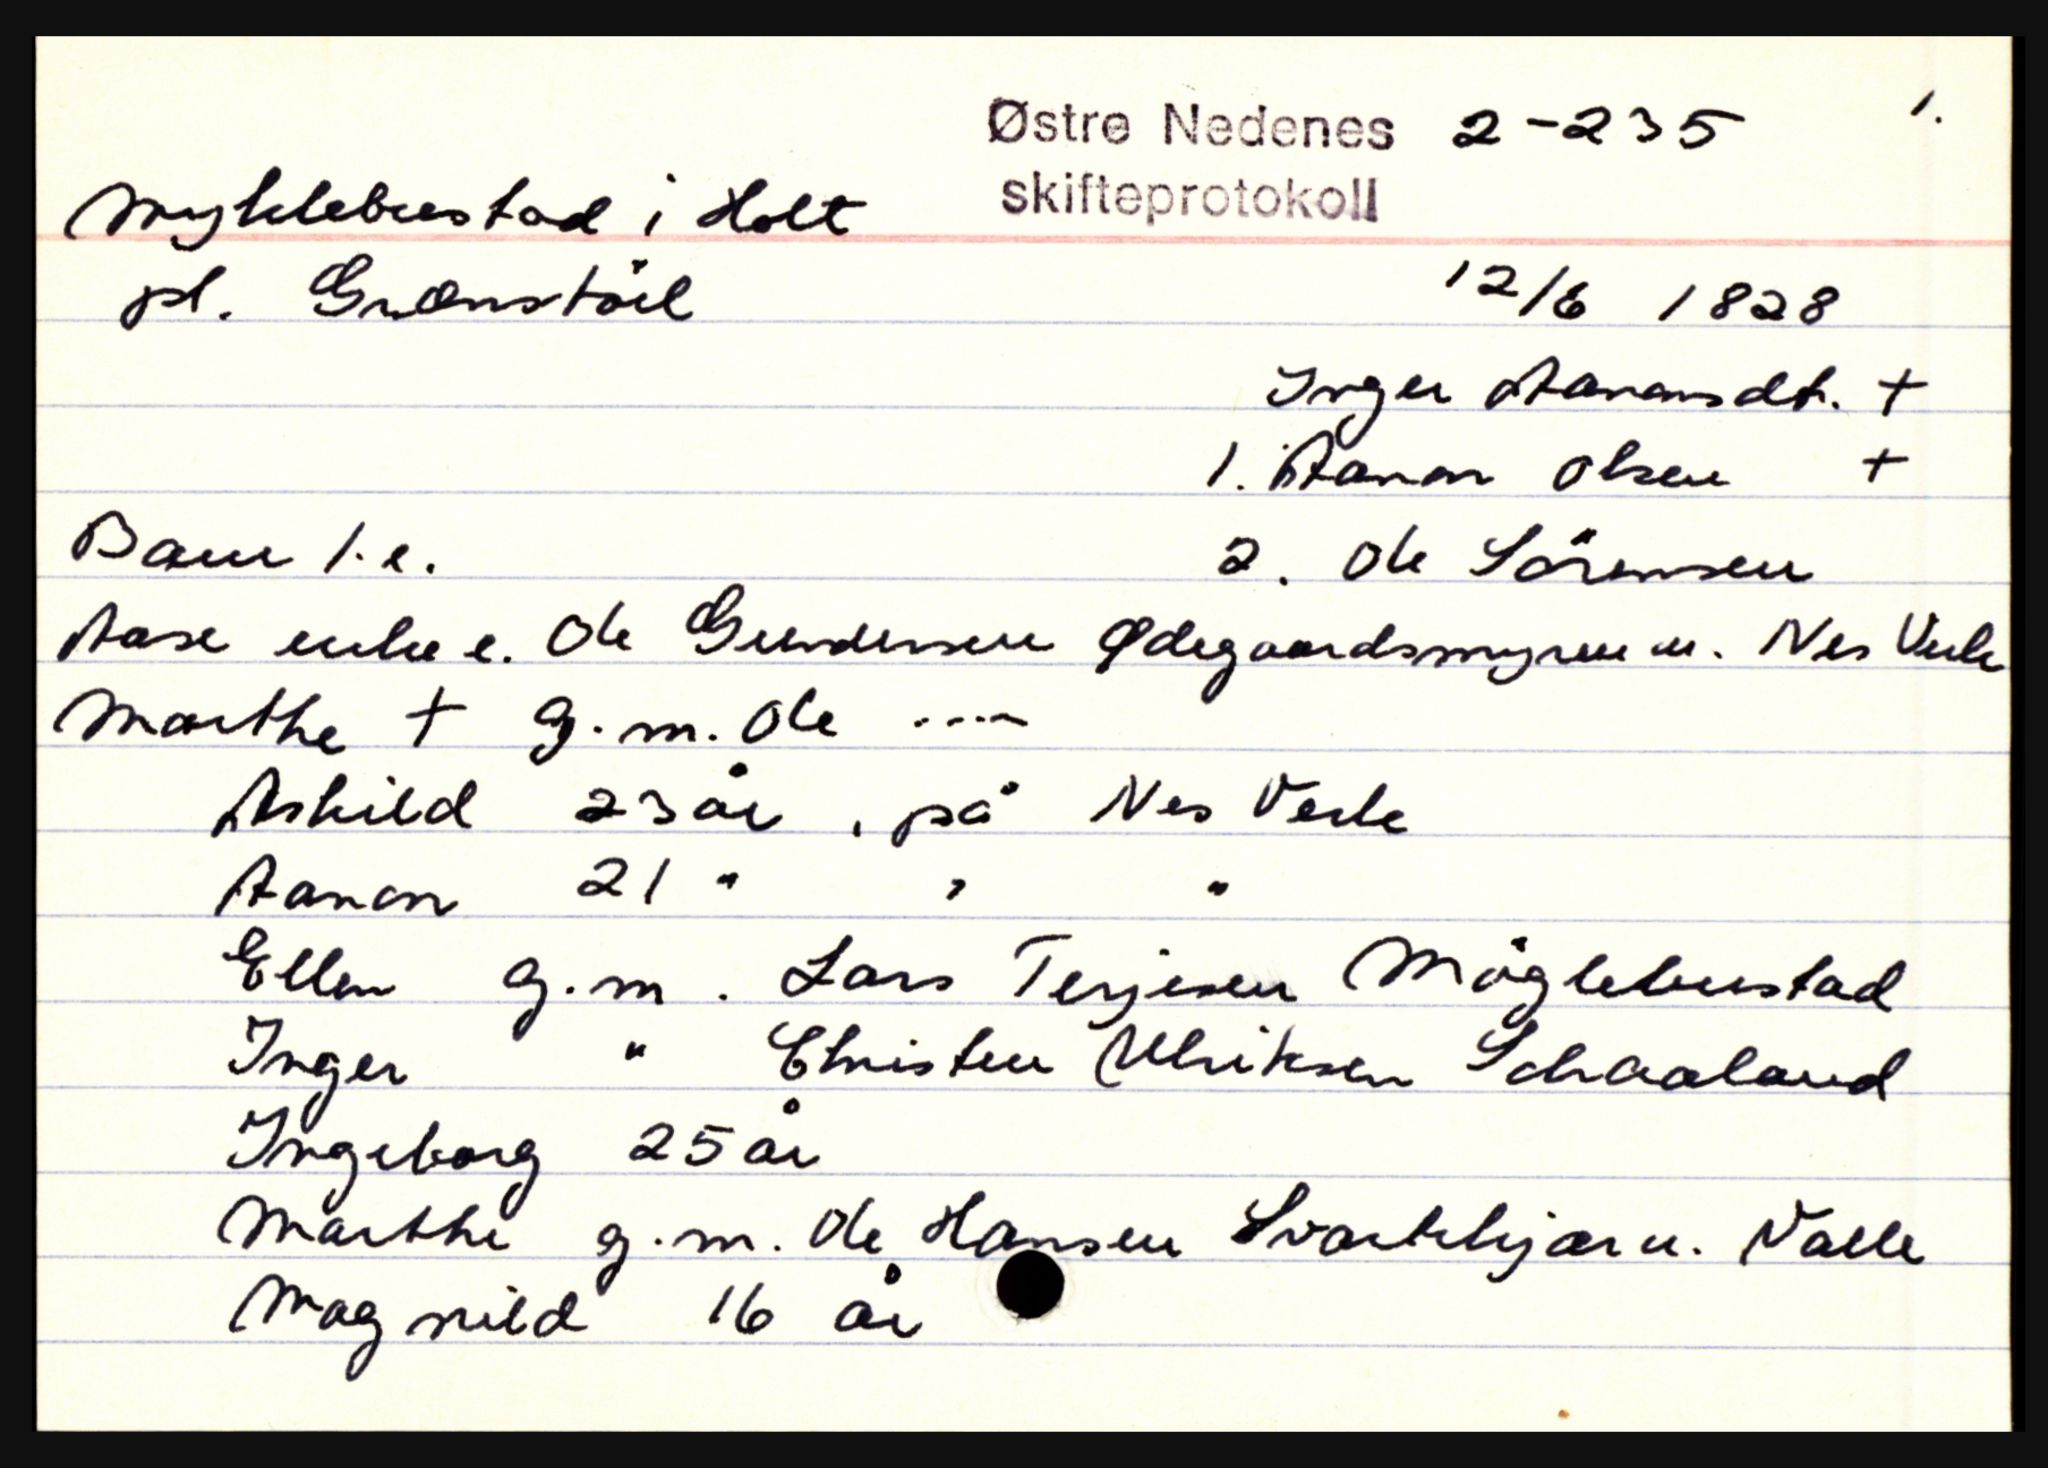 1.
Østre Nedenes 2-235
skifteprotokoll
Myklebustad i Holt
pl. Grænstöl
12/6 1828
Inger Aanonsdt. +
1. Aanon Olsen +
Barn 1. e.
2. Ole Sörensen
Aase enke e. Ole Gundersen Ødegaardsmyren u. Nes Verk
Marthe + g.m. Ole ----
Askild 23 år, på Nes Verk
Aanon 21 " " "
Ellen g.m. Lars Terjesen Möglebustad
Inger " Christen Ulriksen Schaaland
Ingeborg 25 år
Marthe g.m. Ole Hansen Svartkjær u. Valle
Magnild 16 år